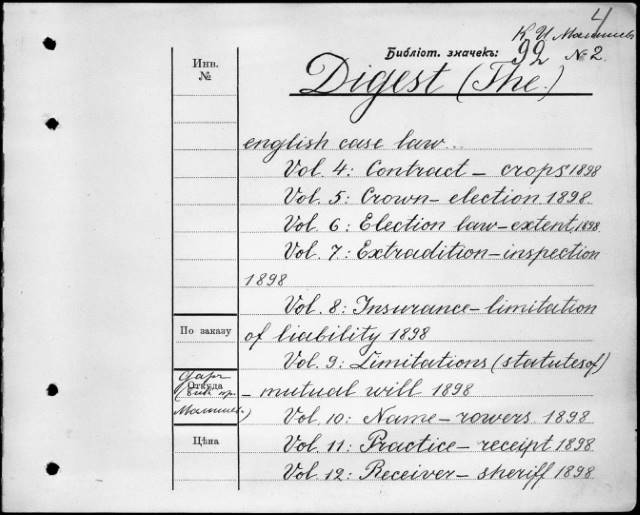 4
К И Малышев
Библіот. значекъ: 92 № 2.
Инв.
№
Digest (The)
english case law...
Vol. 4: Contract – crops 1898
Vol. 5: Crown – election 1898
Vol. 6: Election law – extent, 1898
Vol. 7: Extradition – inspection
1898
Vol. 8: Insurance – limitation
По заказу
of liability 1898
Vol. 9: Limitations (statutes of)
Откуда
– mutual will 1898
Малышев)
Vol. 10: Name – rowers 1898
Цѣна
Vol. 11: Practice – receipt 1898
Vol. 12: Receiver – sheriff 1898